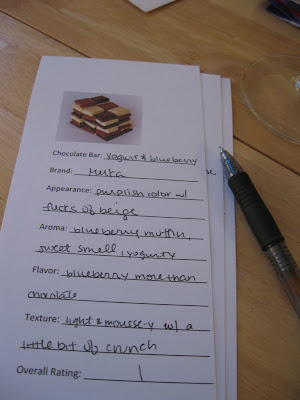 Chocolate Bar: Yogurt & blueberry
Brand: Milka
Appearance: purplish color w/
flecks of beige
Aroma: blueberry muffin,
sweet smell, yogurty
Flavor: blueberry more than
chocolate
Texture: light & mousse-y w/ a
little bit of crunch
Overall Rating: 1